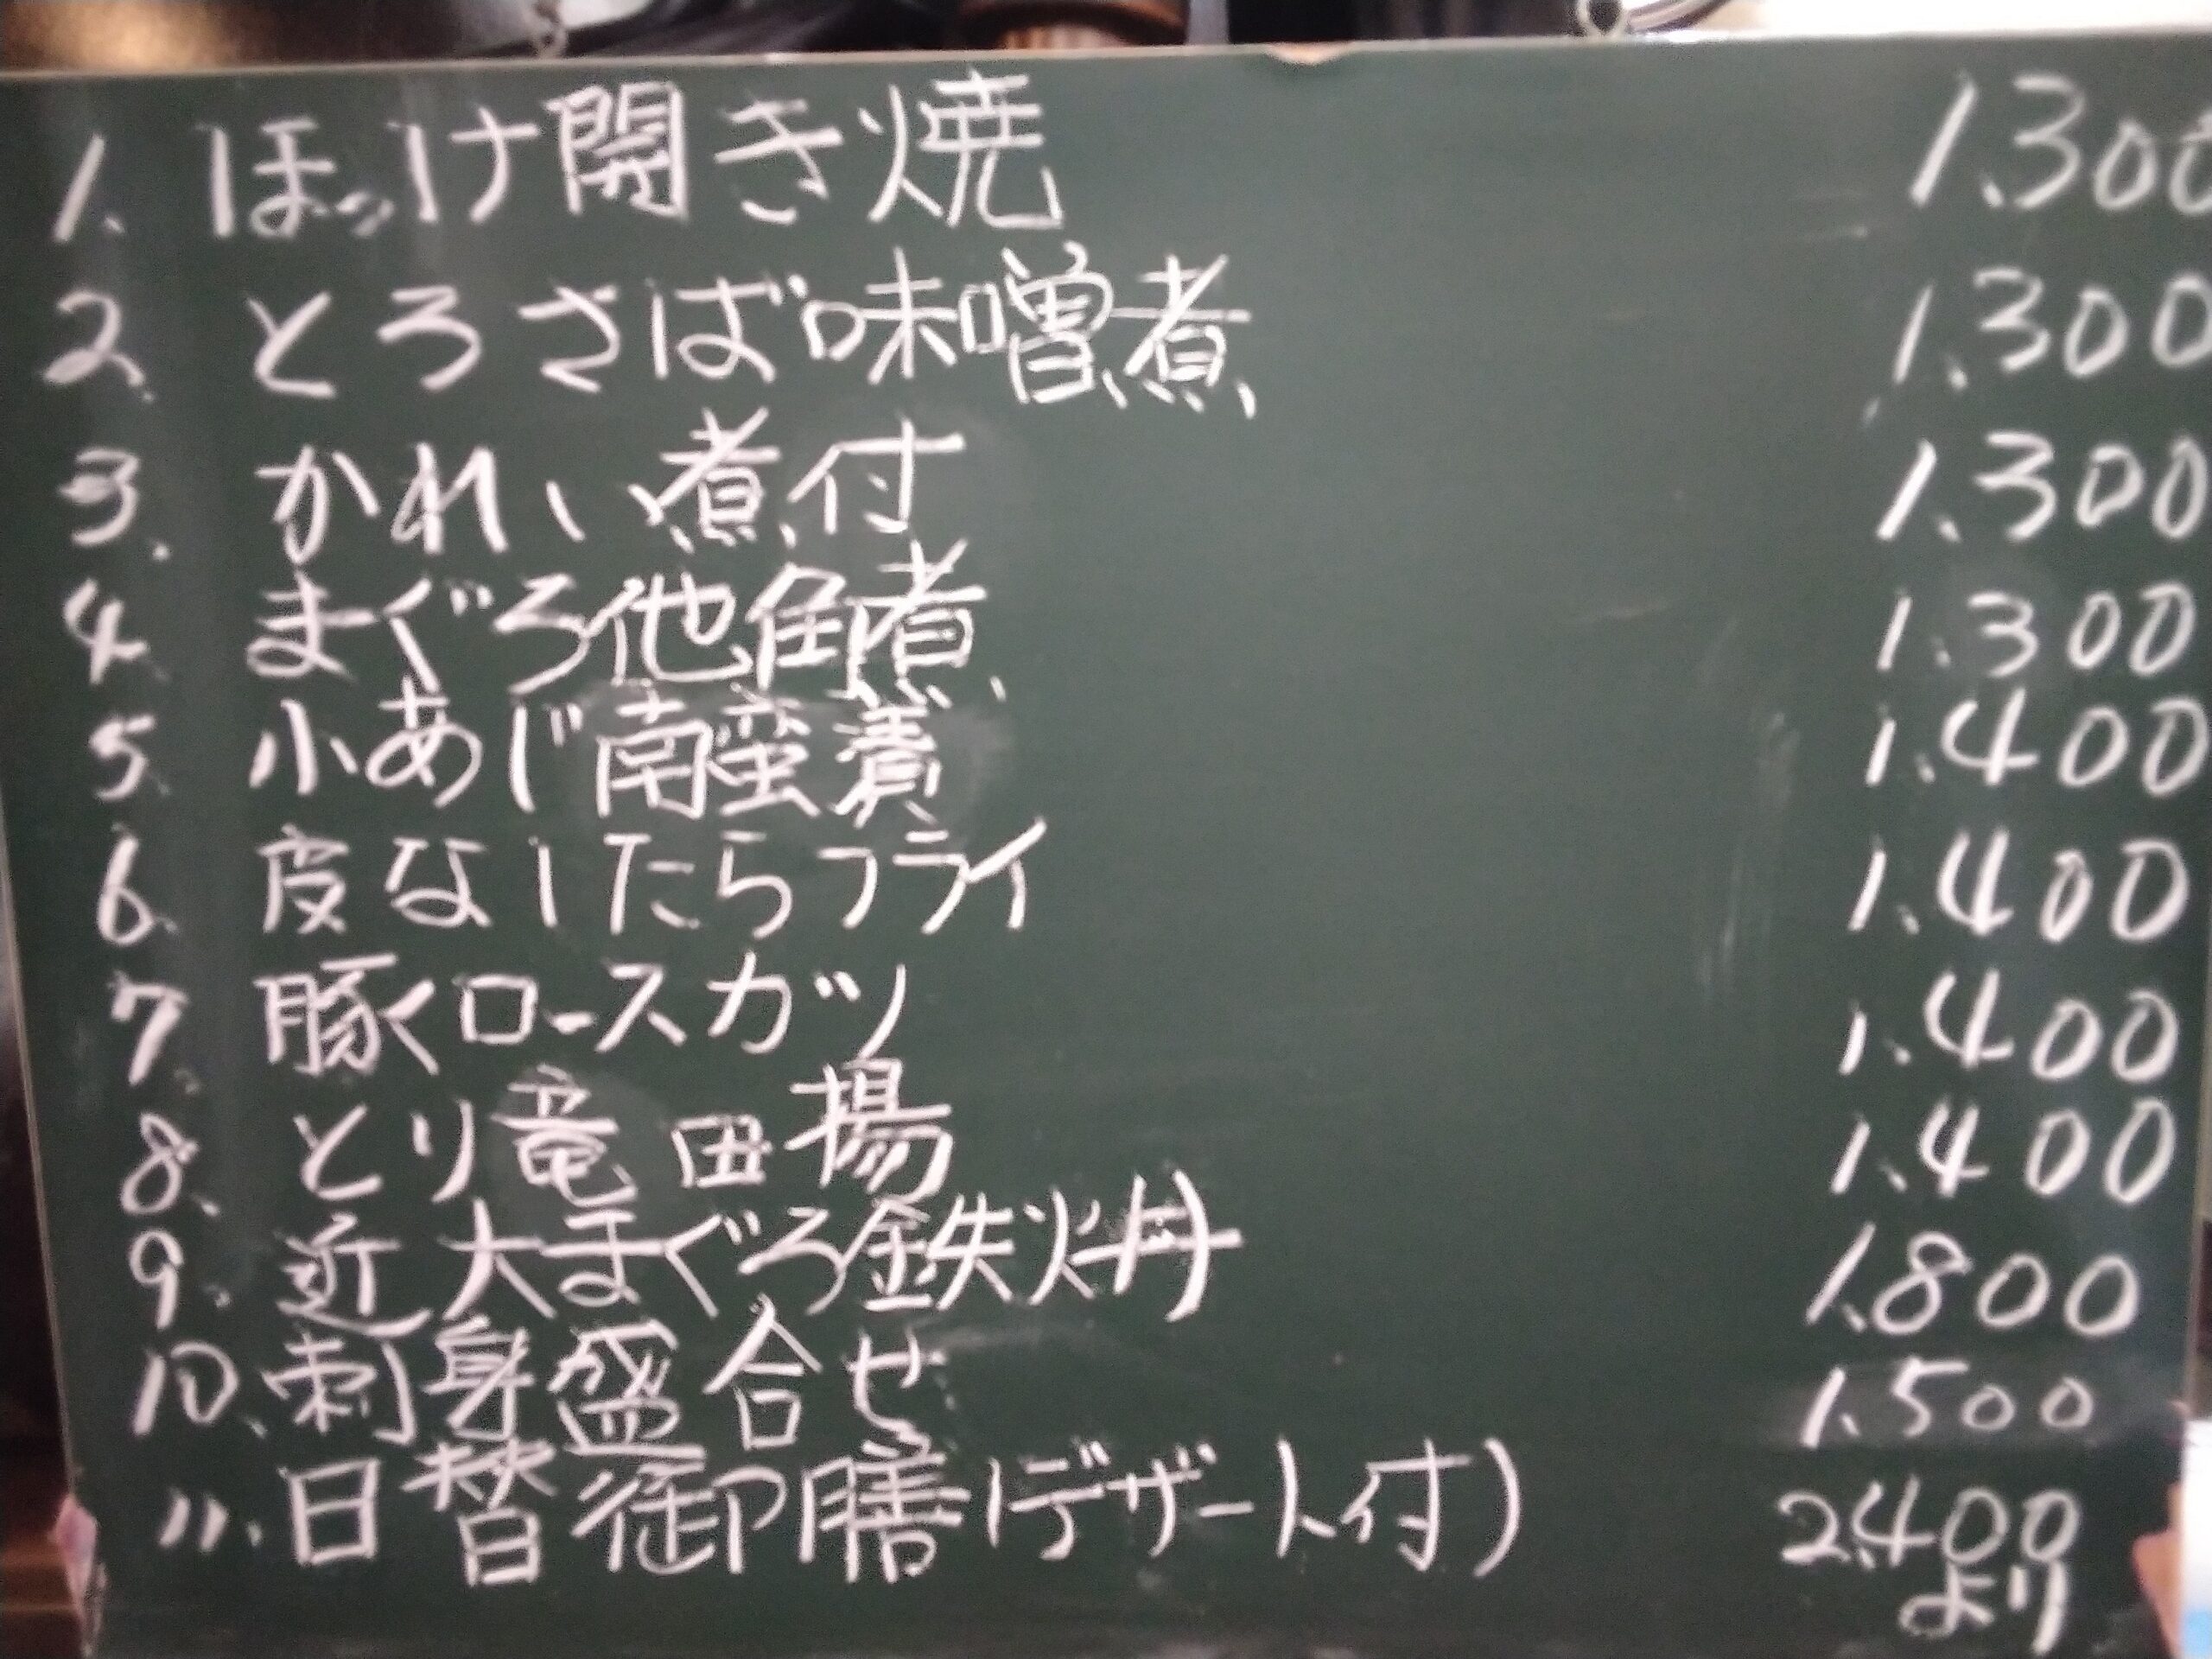 1. ほっけ開き焼 1.300
2. とろさば味噌煮 1.300
3. かれい煮付 1.300
4. まぐろ他角煮 1.300
5. 小あじ南蛮漬 1.400
6. 皮なしたらフライ 1.400
7. 豚くロースカツ 1.400
8. とり竜田揚 1.400
9. 近大まぐろ鉄火丼 1.800
10. 刺身盛合せ 1.500
11. 日替御膳(デザート付) 2.400
より